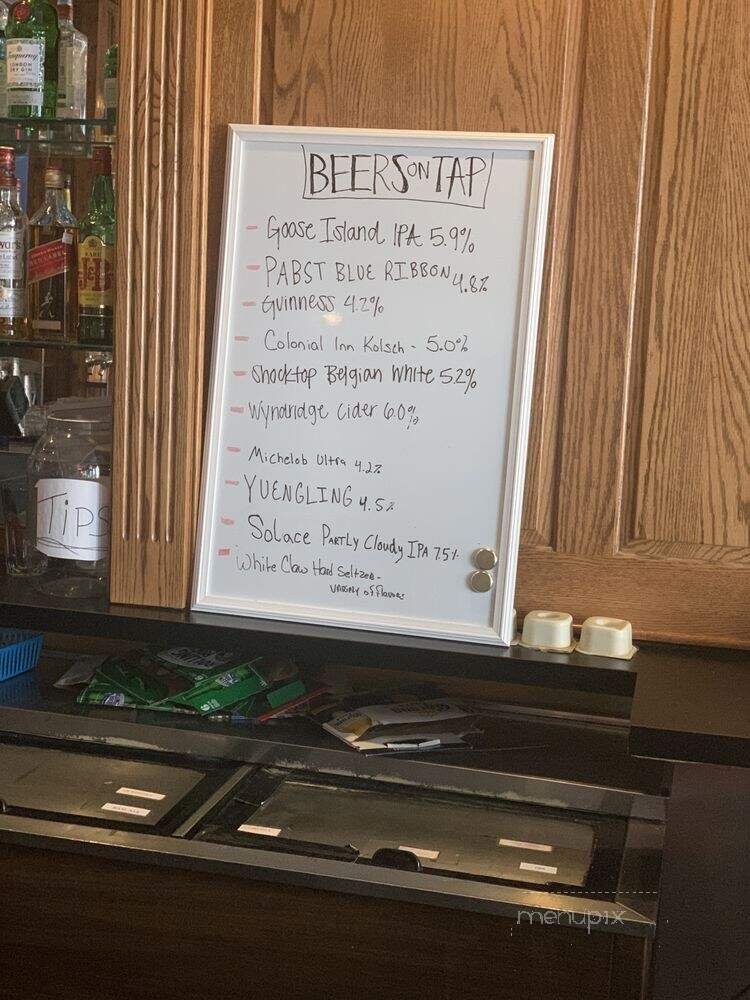 BEERS ON TAP
- Goose Island IPA 5.9%
- PABST BLUE RIBBON 4.8%
- Guinness 4.2%
- Colonial Inn Kolsch - 5.0%
- Shocktop Belgian White 5.2%
- Wyndridge Cider 6.0%
- Michelob Ultra 4.2%
- YUENGLING 4.5%
- Solace Partly Cloudy IPA 7.5%
- White Claw Hard Seltzer -
Variety of Flavors
TIPS
Tanqueray
LONDON
DRY GIN
RED LABEL
J&B
menupix